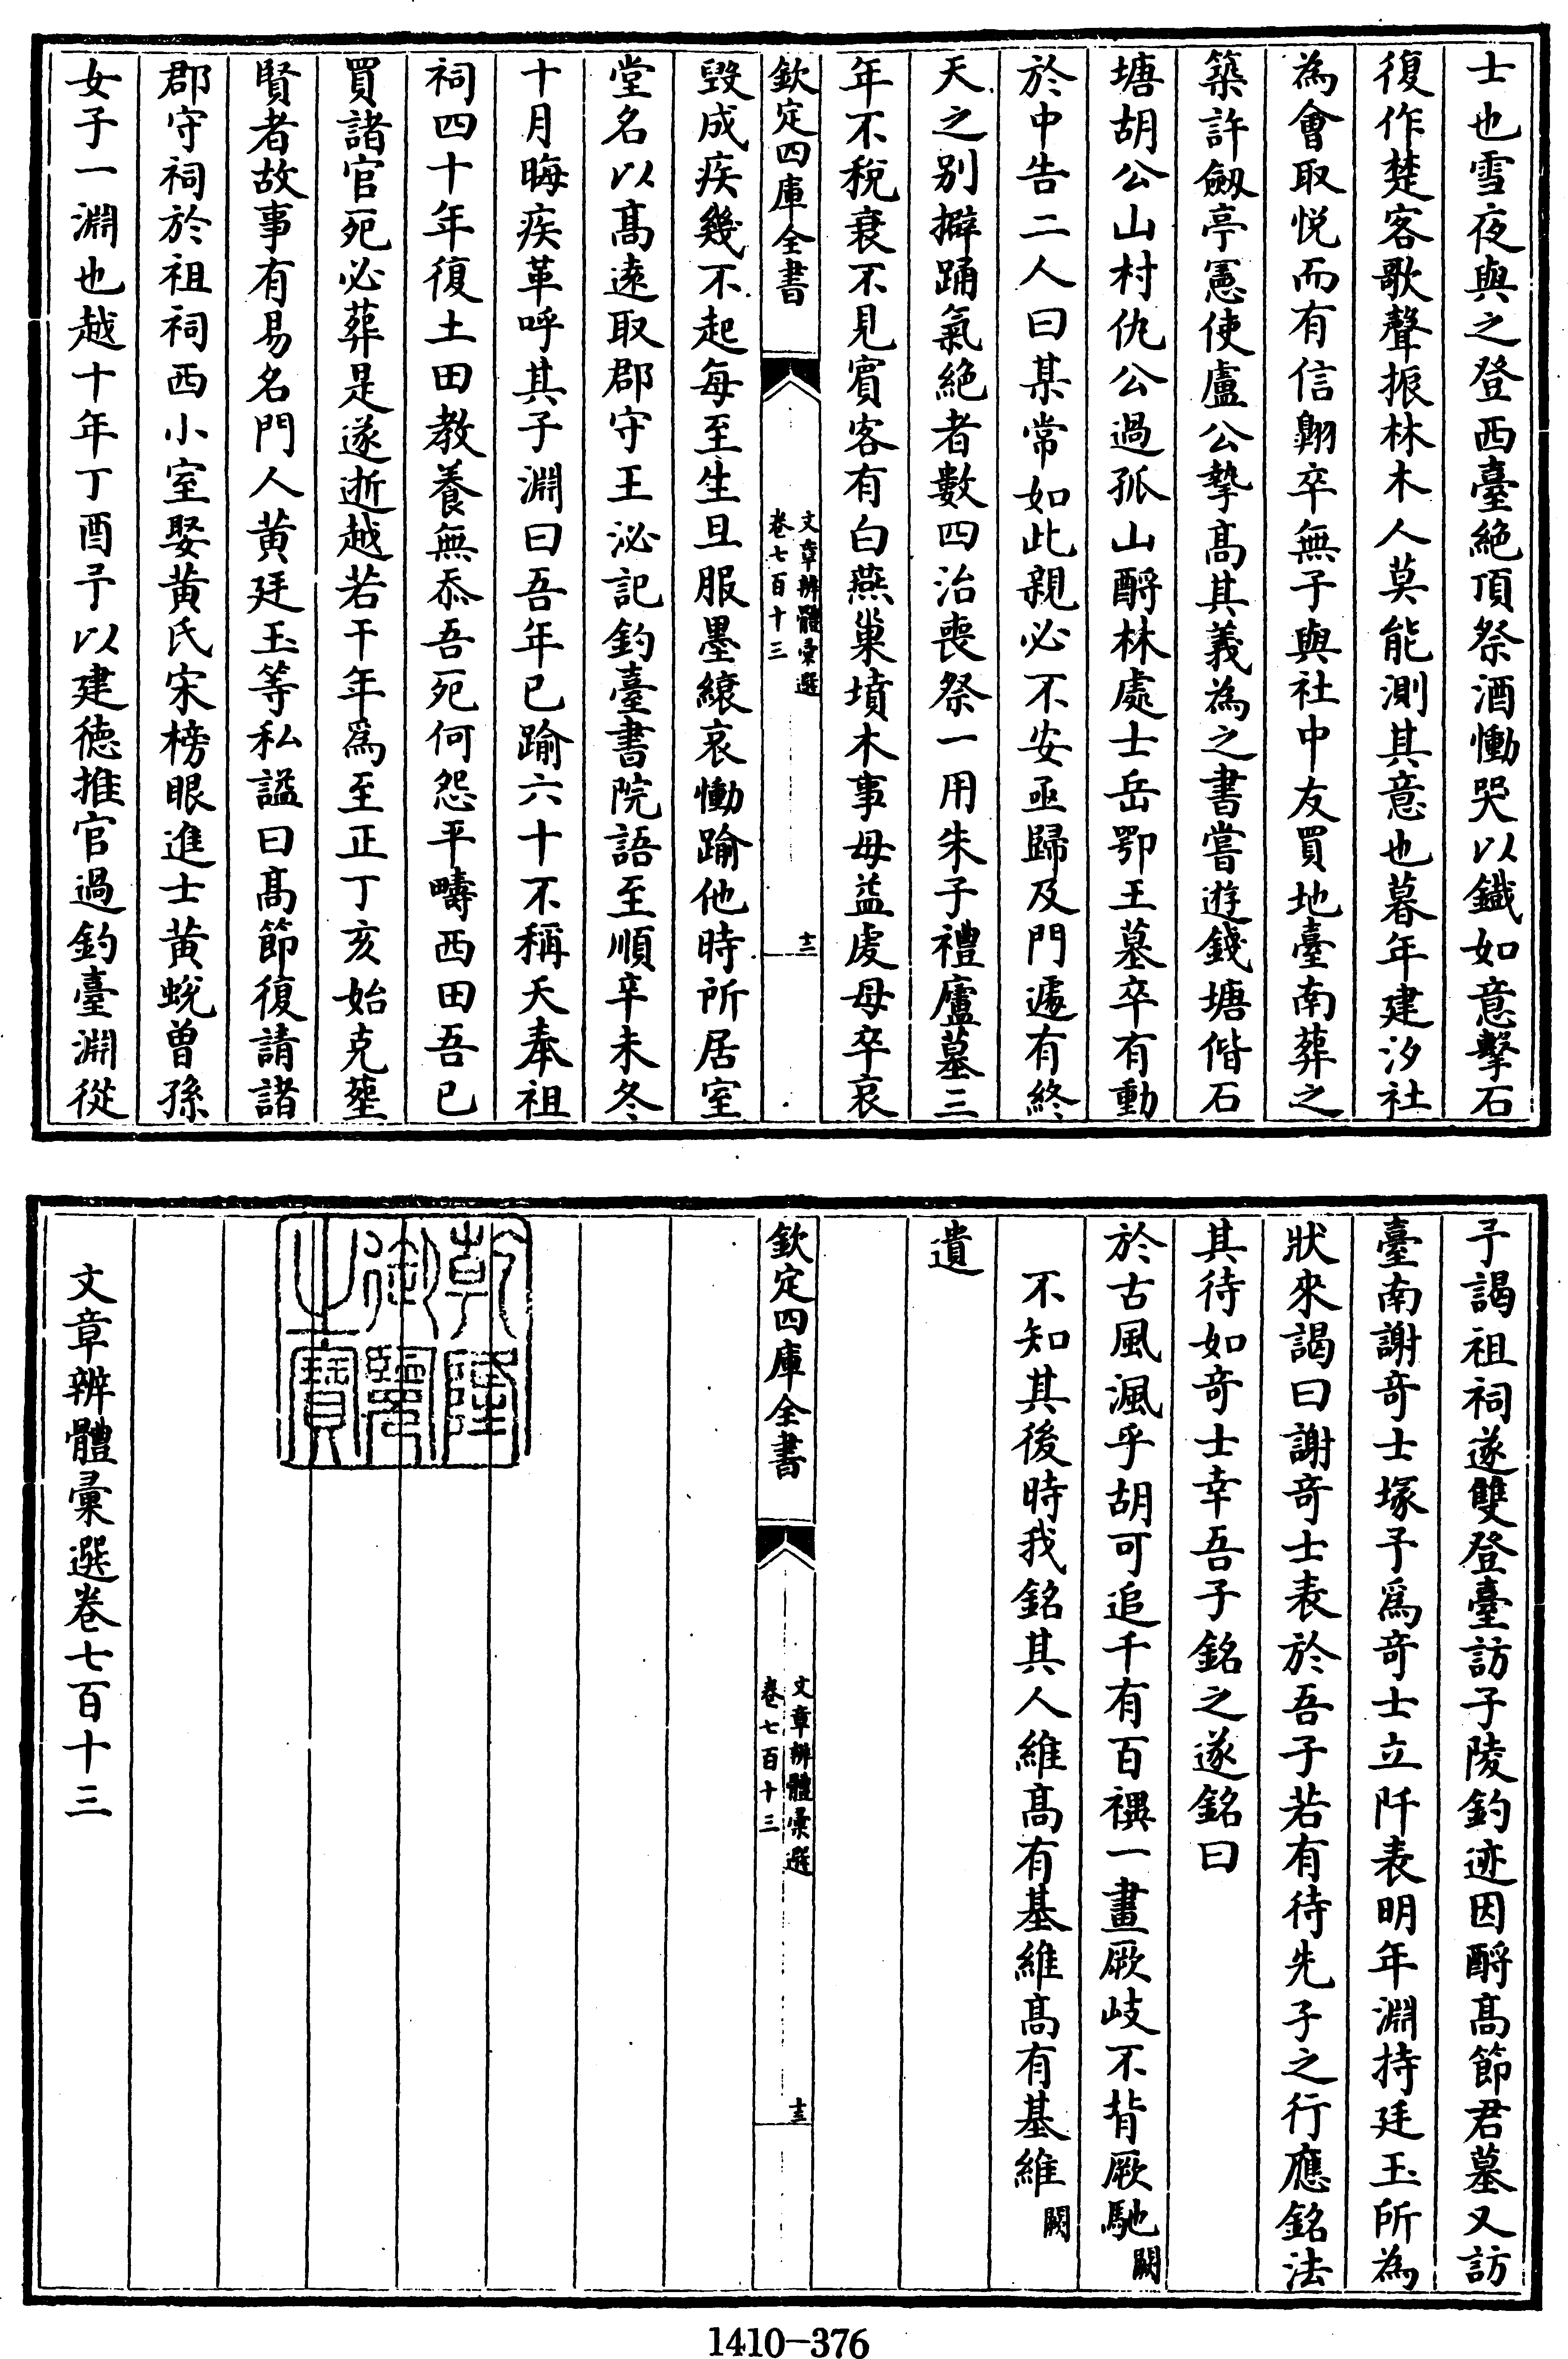 士也雪夜與之登西臺絶頂祭酒慟哭以鐵如意擊石
復作楚客歌聲振林木人莫能測其意也暮年建汐社
為會取悦而有信翺卒無子與社中友買地臺南葬之
築許劔亭憲使盧公摯髙其義為之書嘗遊錢塘偕石
塘胡公山村仇公過孤山酹林處士岳鄂王墓卒有動
於中告二人曰某常如此親必不安亟歸及門遽有終
天之别擗踊氣絶者數四治喪祭一用朱子禮廬墓三
年不稅衰不見賓客有白燕巢墳木事母益䖍母卒哀
欽定四庫全書
文章辨體彚選
卷七百十三
十二
毀成疾幾不起每至生旦服墨縗哀慟踰他時所居室
堂名以髙逺取郡守王泌記釣臺書院語至順辛未冬
十月晦疾革呼其子淵曰吾年已踰六十不稱天奉祖
祠四十年復土田教養無忝吾死何怨平疇西田吾已
買諸官死必葬是遂逝越若干年爲至正丁亥始克塟
賢者故事有易名門人黄廷玉等私諡曰髙節復請諸
郡守祠於祖祠西小室娶黄氏宋榜眼進士黄蛻曾孫
女子一淵也越十年丁酉予以建徳推官過釣臺淵從
予謁祖祠遂雙登臺訪子陵釣迹因酹髙節君墓又訪
臺南謝竒士塚予爲竒士立阡表明年淵持廷玉所為
狀來謁曰謝竒士表於吾子若有待先子之行應銘法
其待如竒士幸吾子銘之遂銘曰
於古風渢乎胡可追千有百禩一畫厥岐不背厥馳闕
不知其後時我銘其人維髙有基維髙有基維闕
遺
欽定四庫全書
文章辨體彚選
卷七百十三
十三
乾隆
御覽
之寶
文章辨體彚選卷七百十三
1410-376